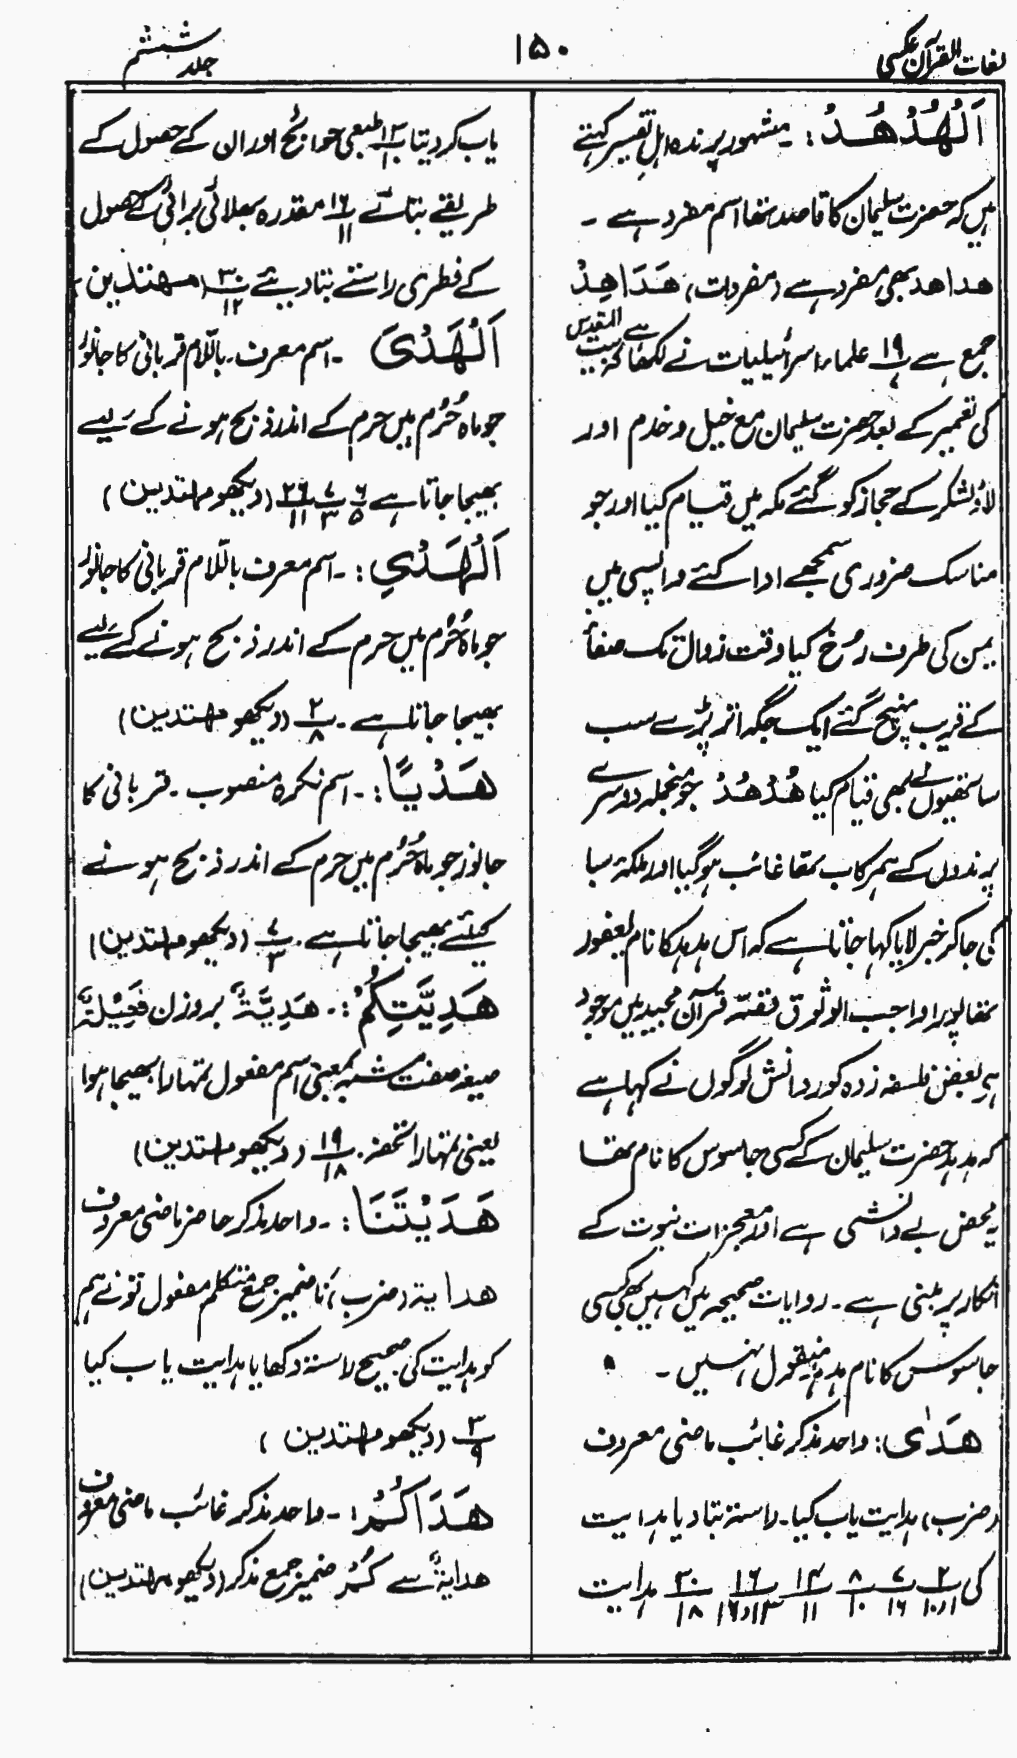 لغات القرآن عکسی
۱۵۰
جلد ششم
اَلْهُدْهُدُ:۔ مشہور پرندہ اہل تفسیر کہتے
ہیں کہ حضرت سلیمان کا قاصد تھا اسم مفرد ہے ۔
ھداھد بھی مفرد ہے (مفردات) هَدَاهِدُ
جمع ہے ۱۹ علماء اسرائیلیات نے لکھا ہے کہ بیت المقدس
کی تعمیر کے بعد حضرت سلیمان مع خیل و خدم اور
لاؤ لشکر کے حجاز کو گئے مکہ میں قیام کیا اور جو
مناسک ضروری سمجھے ادا کئے واپسی میں
یمن کی طرف رخ کیا وقت زوال تک صنعأ
کے قریب پہنچ گئے ایک جگہ اتر پڑے سب
ساتھیوں نے بھی قیام کیا هُدْهُدُ جو منجملہ دوسرے
پرندوں کے ہمرکاب تھا غائب ہو گیا اور ملکۂ سبا
کی جا کر خبر لایا کہا جاتا ہے کہ اس ہدہد کا نام یعفور
تھا پورا واجب الوثوق قصّہ قرآن مجید میں موجود
ہے بعض فلسفہ زدہ کور دانش لوگوں نے کہا ہے
کہ ہدہد حضرت سلیمان کے کسی جاسوس کا نام تھا
یہ محض بے دانشی ہے اور معجزات نبوت کے
انکار پر مبنی ہے۔ روایات صحیحہ میں کہیں بھی کسی
جاسوس کا نام ہدہد منقول نہیں ۔
هَدٰى: واحد مذکر غائب ماضی معروف
(ضرب) ہدایت یاب کیا۔ راستہ بتا دیا ہدایت
کی ۲/۱۰و۱ ۷/۱۶ ۸/۱۰ ۱۳/۱۱ ۱۶/۱۳و۱۶ ۳۰/۱۸ ہدایت
یاب کر دیتا ۱۳ طبعی حوائج اور ان کے حصول کے
طریقے بتائے ۱۶/۱۱ مقدرہ بھلائی برائی کے حصول
کے فطری راستے بتا دیئے ۳۰/۱۲ (مھتدین)
اَلْهَدْىَ ۔ اسم معرف باللام قربانی کا جانور
جو ماہ حُرُم میں حرم کے اندر ذبح ہونے کے لیے
بھیجا جاتا ہے ۶/۵ ۷/۳ ۲۶/۱۱ (دیکھو مہتدین)
اَلْهَدْيِ:۔ اسم معرف باللام قربانی کا جانور
جو ماہ حُرُم میں حرم کے اندر ذبح ہونے کے لیے
بھیجا جاتا ہے۔ ۲/۸ (دیکھو مہتدین)
هَدْيًا:۔ اسم نکرہ منصوب ۔ قربانی کا
جانور جو ماہ حُرُم میں حرم کے اندر ذبح ہونے
کیلئے بھیجا جاتا ہے۔ ۷/۳ (دیکھو مہتدین)
هَدِيَّتِكُمْ:۔ هَدِيَّةٌ بروزن فَعِيْلَةٌ
صیغہ صفت مشبہ بمعنی اسم مفعول تمہارا بھیجا ہوا
یعنی تمہارا تحفہ۔ ۱۹/۱۸ (دیکھو مہتدین)
هَدَيْتَنَا:۔ واحد مذکر حاضر ماضی معروف
ھدایة (ضرب) نَا ضمیر جمع متکلم مفعول تو نے ہم
کو ہدایت کی۔ صحیح راستہ دکھایا ہدایت یاب کیا
۳/۹ (دیکھو مہتدین)
هَدَاكُمْ:۔ واحد مذکر غائب ماضی معروف
ھدایةٌ سے کُمْ ضمیر جمع مذکر (دیکھو مہتدین)